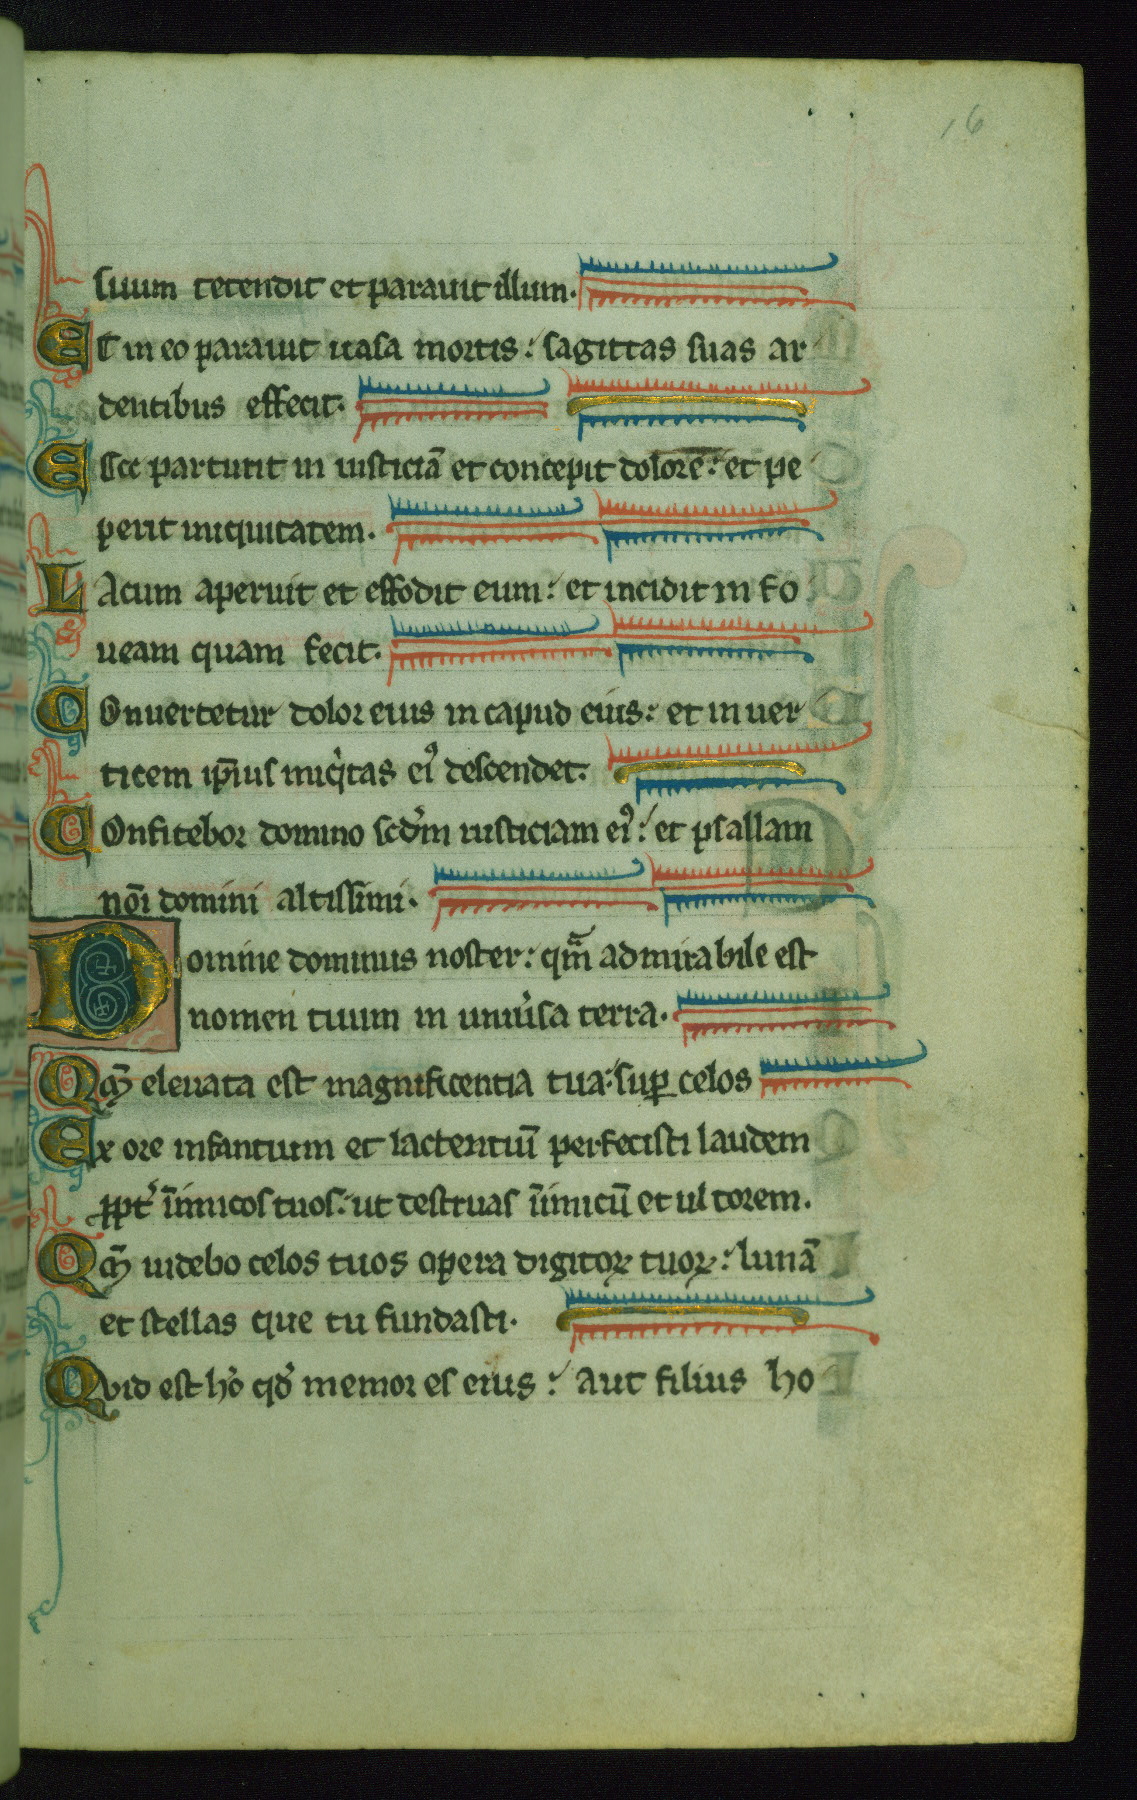 16
suum tetendit et parauit illum.
ET in eo parauit uasa mortis: sagittas suas ar
dentibus effecit.
ECce parturit in iusticiā et concepit dolorē: et pe
perit iniquitatem.
LAcum aperuit et effodit eum: et incidit in fo
ueam quam fecit.
COnuertetur dolor eius in capud eius: et in uer
ticem ip̄ius iniq̇tas ei⁹ descendet.
COnfitebor domino scd̄m iusticiam ei⁹: et psallam
nōi domini altissimi.
Domine dominus noster: qm̄ admirabile est
nomen tuum in uniu̓sa terra.
Qm̄ eleuata est magnificentia tua: sup̲ celos
Ex ore infantium et lactentiū perfecisti laudem
ppt̓ īimicos tuos: ut destruas īimicū et ultorem.
Qm̄ uidebo celos tuos opera digitoꝝ tuoꝝ: lunā
et stellas que tu fundasti.
Quid est hō qd̓ memor es eius: Aut filius ho